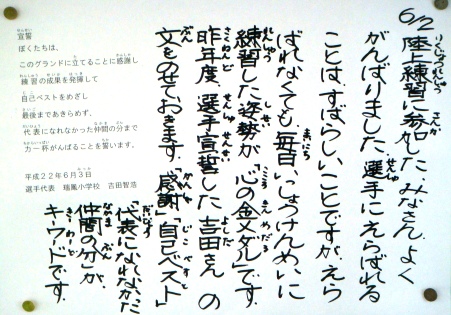 6/2 陸上練習に参加した、みなさん、よく
がんばりました。選手にえらばれる
ことは、すばらしいことですが、えら
ばれなくても、毎日いっしょうけんめいに
練習した姿勢が「心の金メダル」です。
昨年度、選手宣誓した吉田さんの
文をのせておきます。「感謝」「自己ベスト」
「代表になれなかった
仲間の分」が、
キーワードです。
宣誓
ぼくたちは、
このグランドに立てることに感謝し
練習の成果を発揮して
自己ベストをめざし
最後まであきらめず、
代表になれなかった仲間の分まで
力一杯がんばることを誓います。
平成22年6月3日
選手代表 瑞鳳小学校 吉田智浩